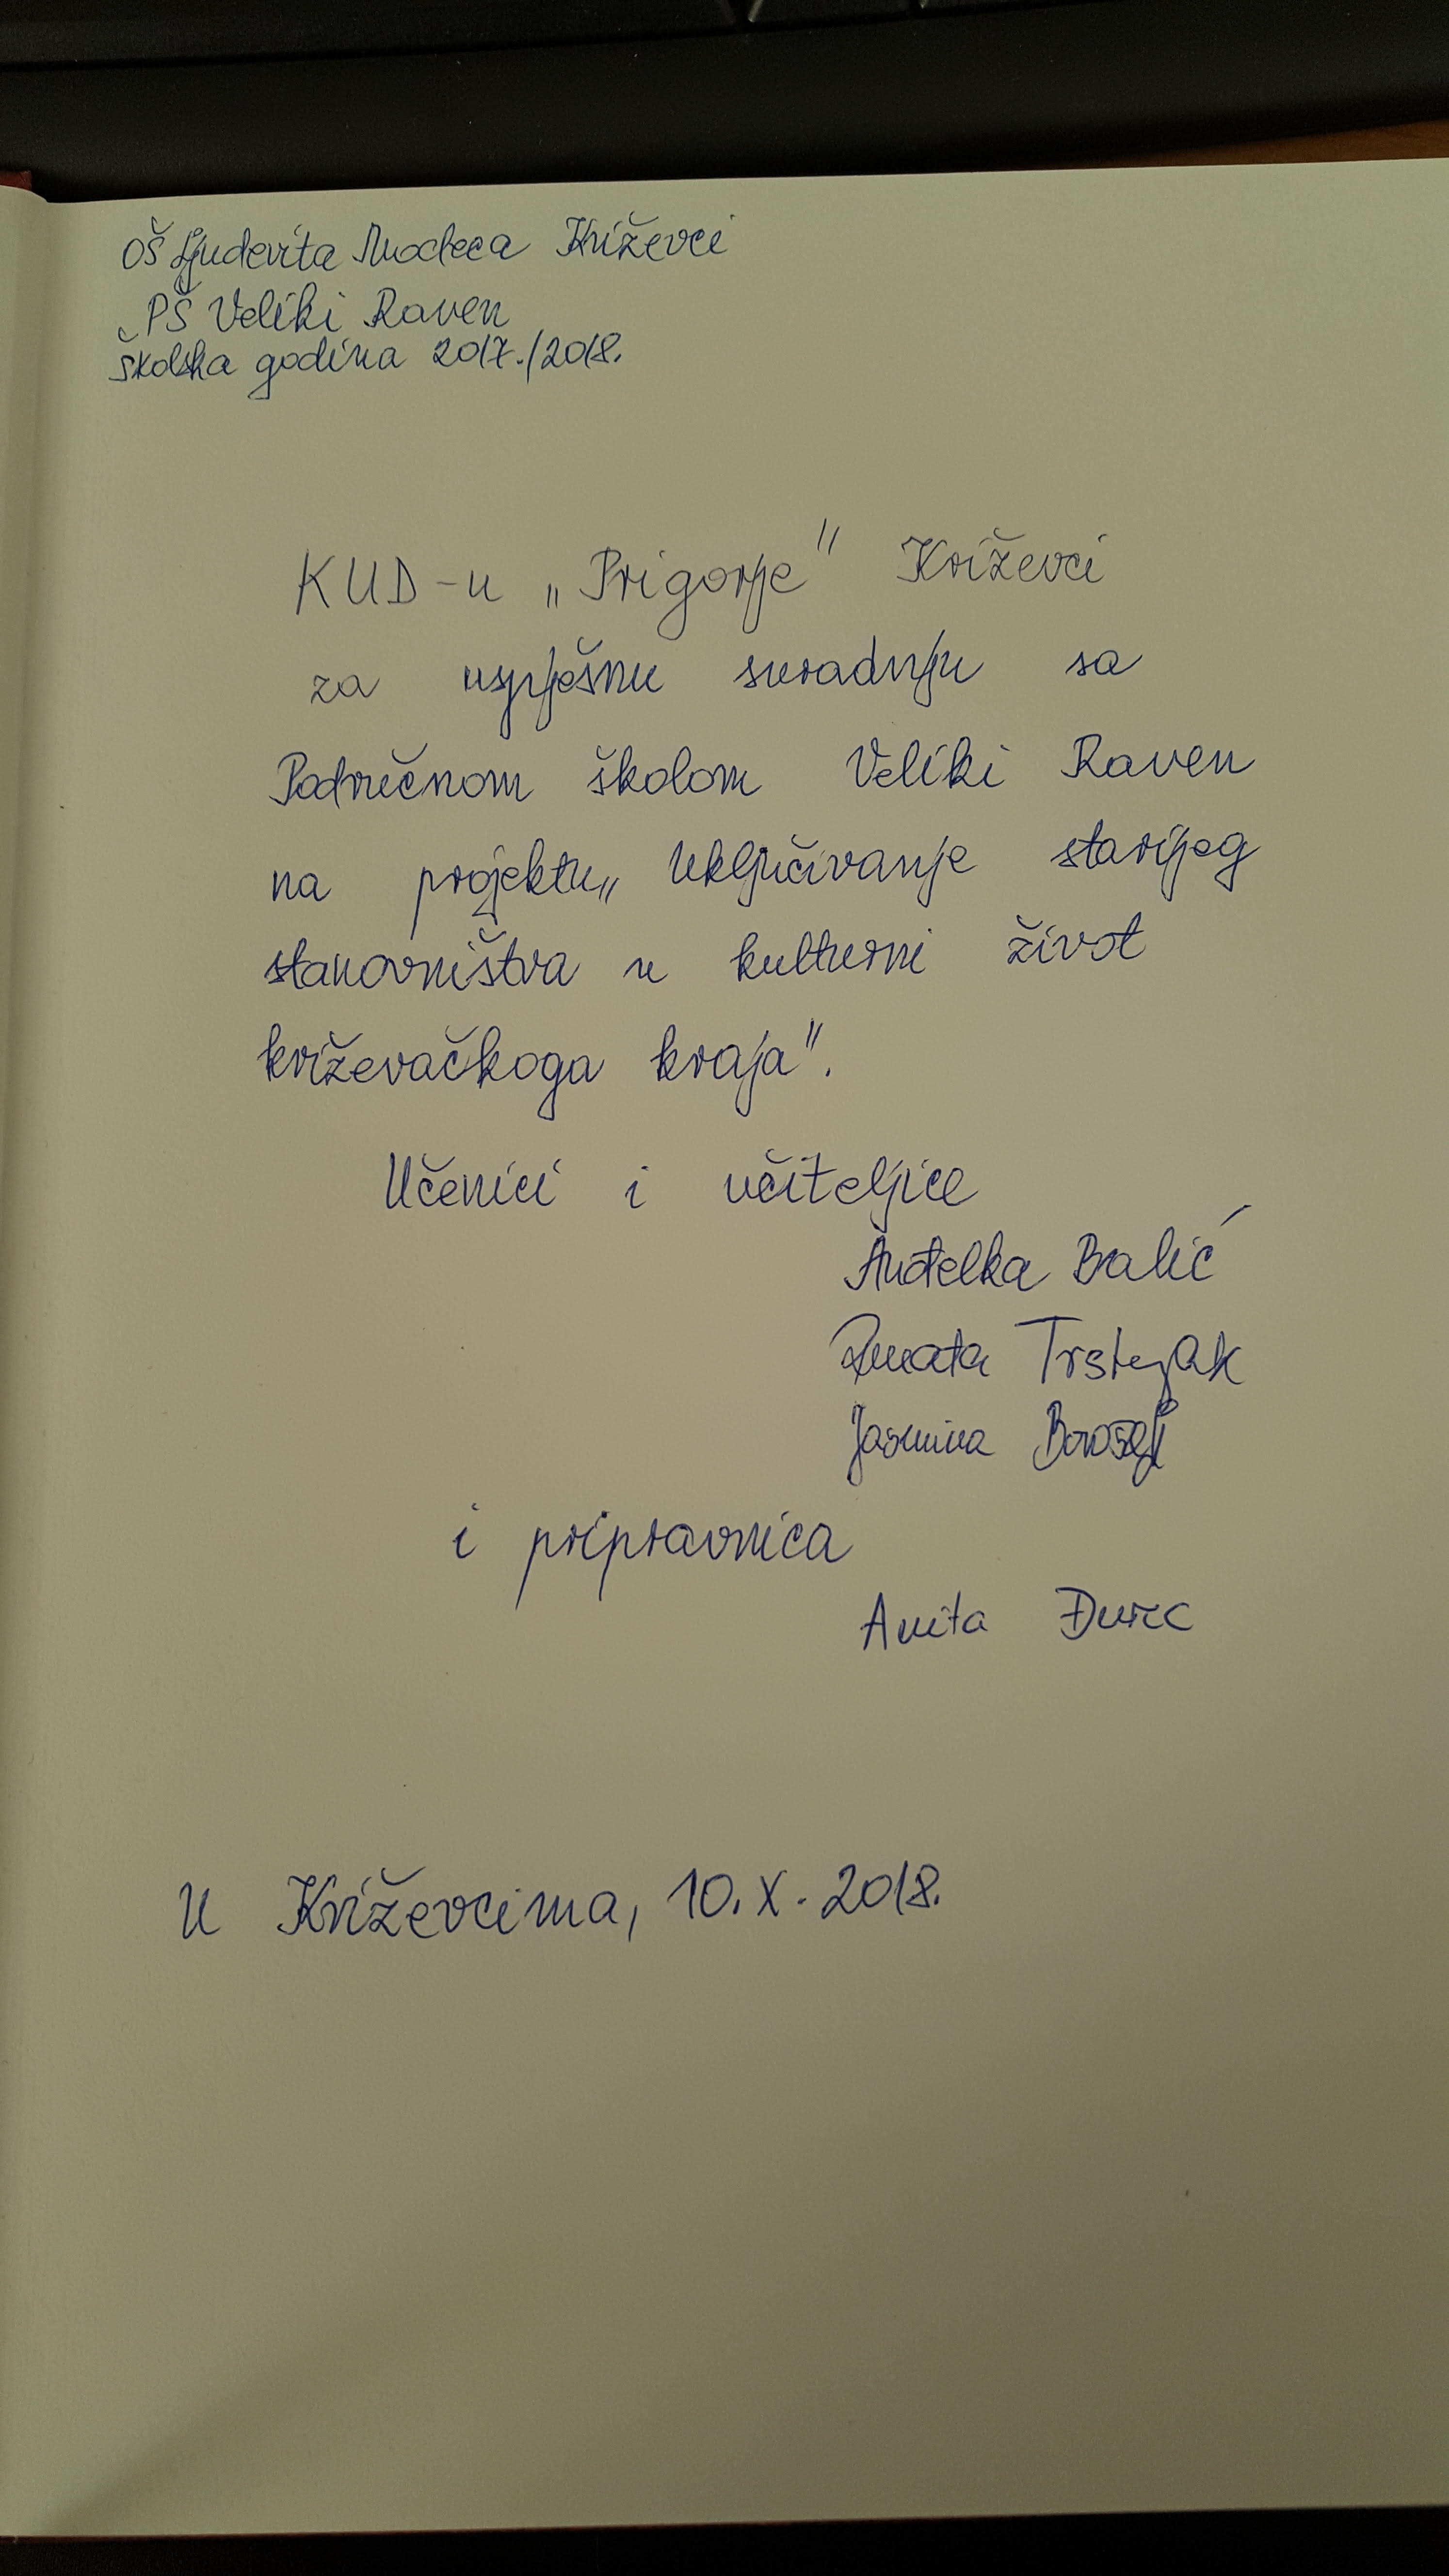 OŠ Ljudevita Modeca Križevci
PŠ Veliki Raven
školska godina 2017./2018.
KUD-u „Prigorje" Križevci
za uspješnu suradnju sa
Područnom školom Veliki Raven
na projektu „Uključivanje starijeg
stanovništva u kulturni život
križevačkoga kraja".
Učenici i učiteljice
Anđelka Balić
Renata Trstenjak
Jasmina
i pripravnica
Anita Đurec
U Križevcima, 10. X. 2018.